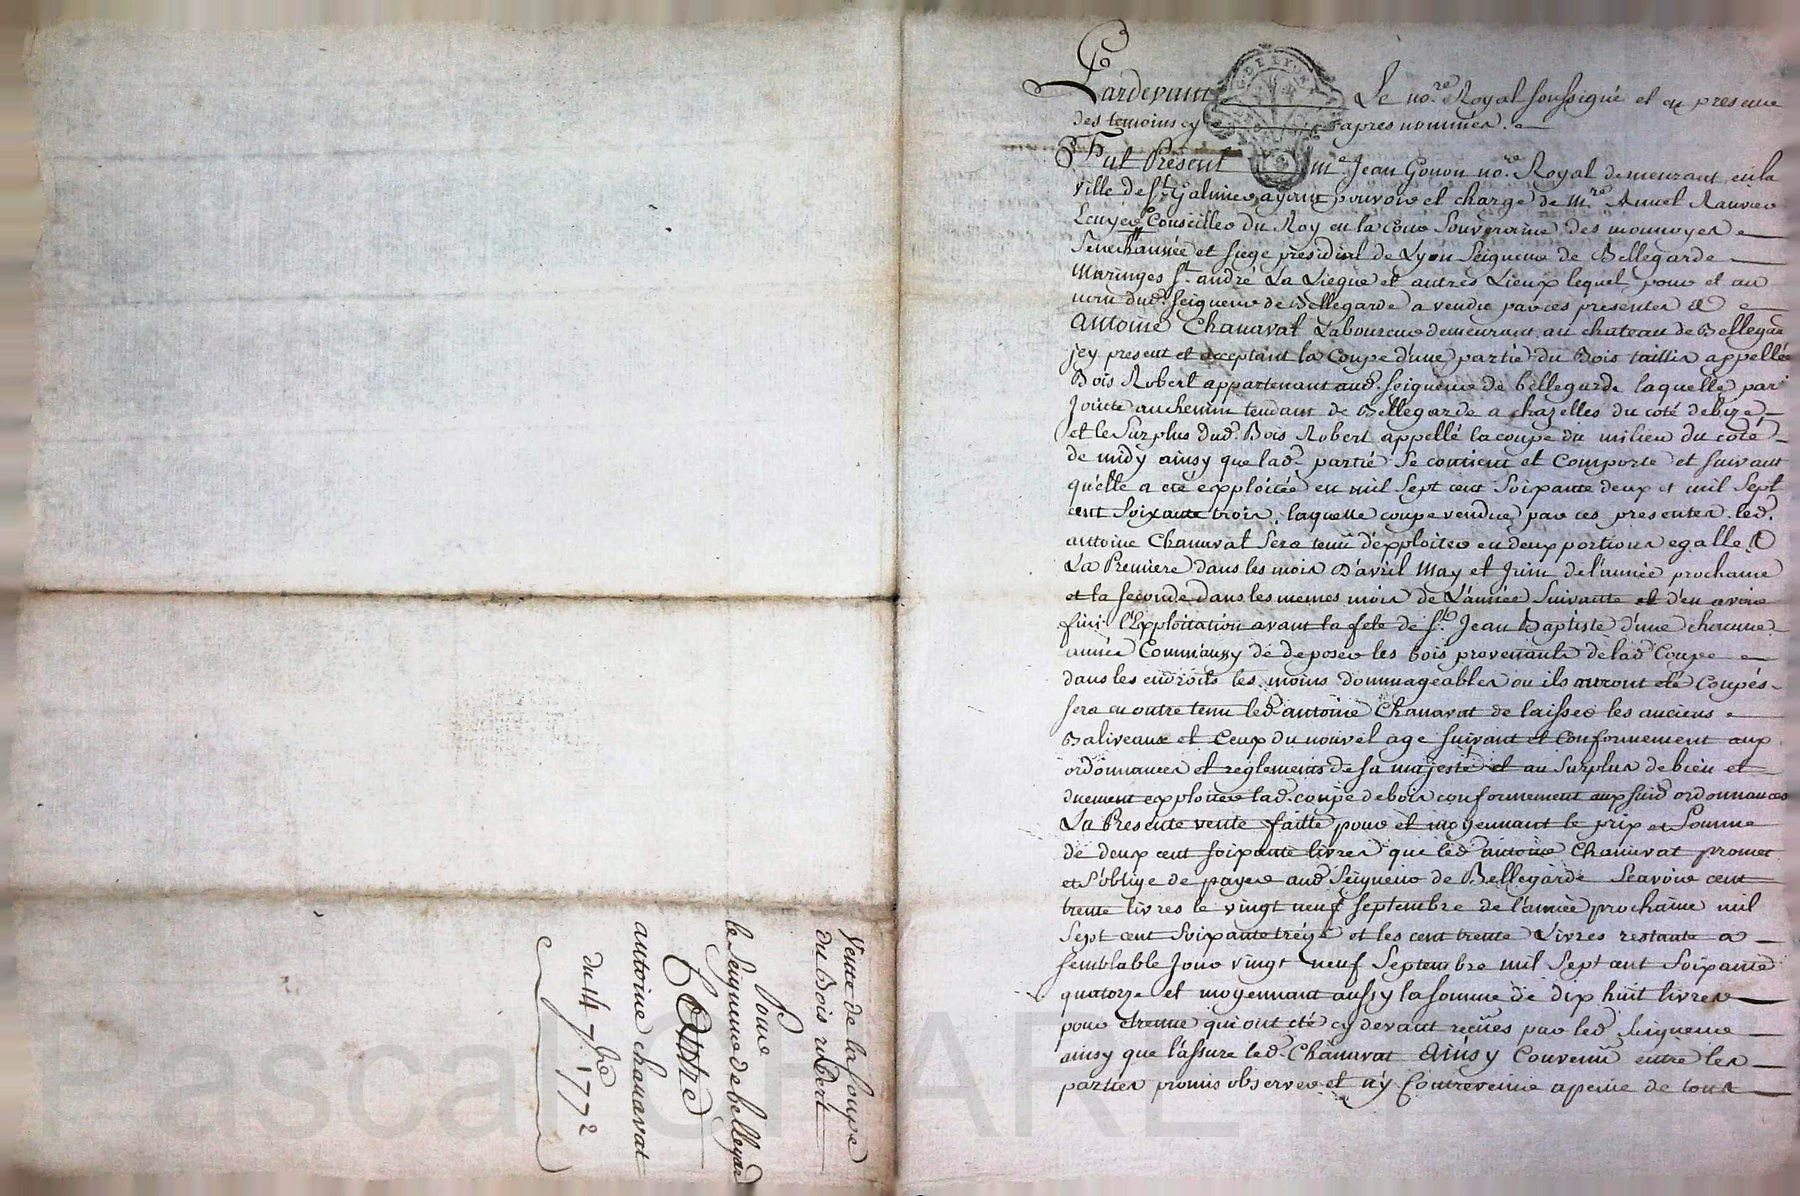 Pardevant Le no.re Royal soussigné et en presence
des temoins cy apres nommés.
G. DE LYON
Fut Présent m.e Jean Gonon no.re Royal demeurant en la
ville de St Galmier ayant pouvoir et charge de m.re Annet Ranvier
Ecuyer Conseiller du Roy en la cour Souveraine des monnoyes
Senechaussée et siege presidial de Lyon Seigneur de Bellegarde
Maringes St. andré La Liegue et autres Lieux lequel pour et au
nom dud. seigneur de Bellegarde a vendu par ces presentes a
Antoine Chanavat Laboureur demeurant au chateau de Bellegarde
jcy present et acceptant la Coupe d'une partie du Bois taillis appellée
Bois Robert appartenant aud. seigneur de bellegarde laquelle par
Jointe au chemin tendant de Bellegarde a chazelles du coté de bize
et le Surplus dud. Bois Robert appellé la coupe du milieu du coté
de midy ainsy que lad. partie se contient et Comporte et suivant
qu'elle a eté exploitée en mil Sept cent Soixante deux et mil Sept
cent Soixante trois, laquelle coupe vendue par ces presentes led.
antoine Chanavat Sera tenu d'exploiter en deux portions egalles
La Premiere dans les mois d'avril May et Juin de l'année prochaine
et la seconde dans les memes mois de L'année Suivante et d'en avoir
fini l'Exploitation avant la fete de St. Jean Baptiste d'une chacune
année Comm'aussy de deposer les bois provenants de lad. Coupe
dans les endroits les moins dommageables ou ils auront eté Coupés
sera en outre tenu led. antoine Chanavat de laisser les anciens
Baliveaux et Ceux du nouvel age suivant et Conformement aux
ordonnances et reglements de sa majesté et au Surplus de bien et
duement exploiter lad. coupe de bois conformement aux susd. ordonnances
La Presente vente faitte pour et moyennant le prix et Somme
de deux cent soixante livres que led. antoine Chanavat promet
et s'oblige de payer aud. Seigneur de Bellegarde Scavoir cent
trente livres le vingt neuf septembre de l'année prochaine mil
Sept cent Soixante treize et les cent trente Livres restante a
semblable Jour vingt neuf Septembre mil Sept cent Soixante
quatorze et moyennant aussy la somme de dix huit livres
pour etrenne qui ont eté cy devant reçües par led. seigneur
ainsy que l'assure led. Chanavat Ainsy Convenü entre les
parties promis observer et n'y Contrevenir a peine de tous
Vente de la Coupe
du Bois robert
Pour
le Seigneur de bellegarde
Contre
antoine chanavat
du 14 7.bre 1772
Pascal CHARETTA